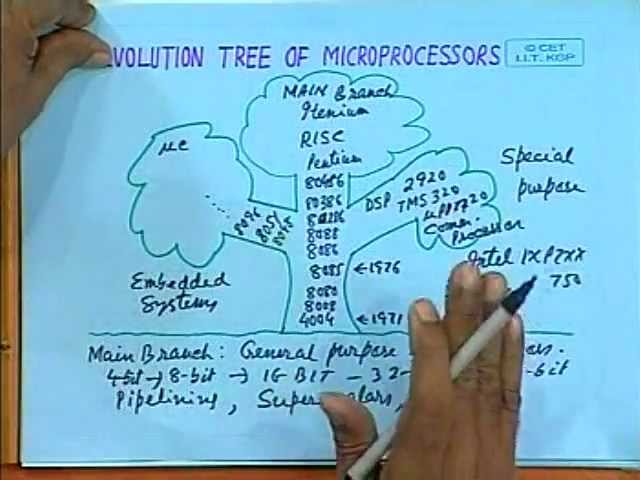 EVOLUTION TREE OF MICROPROCESSORS
© CET
I.I.T. KGP
MAIN Branch
Itenium
RISC
Pentium
80486
80386
80286
8088
8086
8085 ← 1976
8080
8008
4004 ← 1971
μC
8096
8051
8048
Embedded
Systems
DSP 2920
TMS320
μPD7720
Comm.
Processor
Special
purpose
Intel IXP2XX
750
Main Branch: General purpose
4bit → 8-bit → 16 BIT - 32- -bit
Pipelining, Super alars,